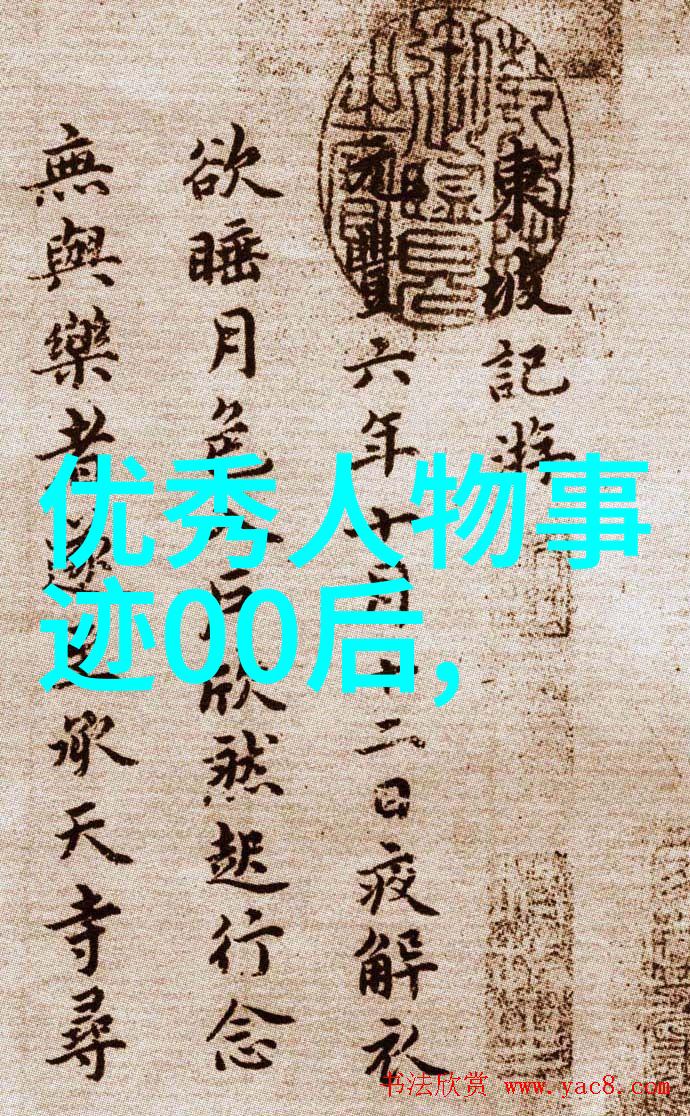 東坡記游
元豐六年十月十二日夜解衣
欲睡月色入戶欣然起行念
無與樂者遂至承天寺尋
优秀人物事
迹00后,
书法欣赏 www.yac8.com